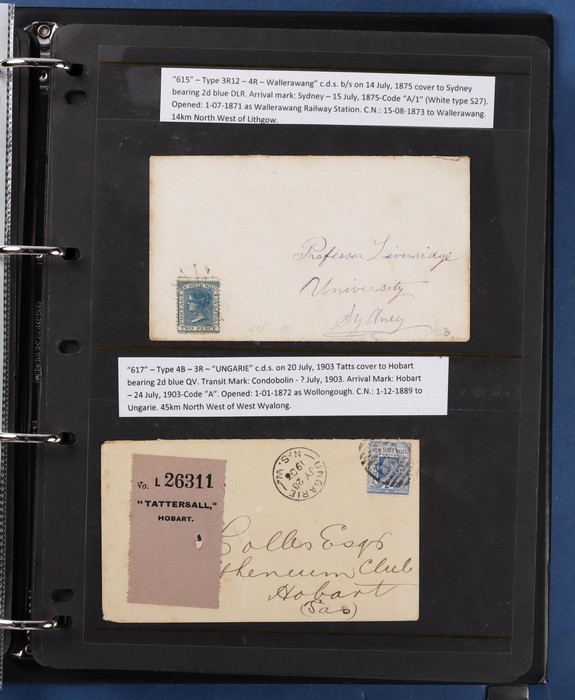 "615" – Type 3R12 – 4R – Wallerawang" c.d.s. b/s on 14 July, 1875 cover to Sydney
bearing 2d blue DLR. Arrival mark: Sydney – 15 July, 1875-Code "A/1" (White type S27).
Opened: 1-07-1871 as Wallerawang Railway Station. C.N.: 15-08-1873 to Wallerawang.
14km North West of Lithgow.
Professor Liversidge
University
Sydney
TWO PENCE
"617" – Type 4B – 3R – "UNGARIE" c.d.s. on 20 July, 1903 Tatts cover to Hobart
bearing 2d blue QV. Transit Mark: Condobolin - ? July, 1903. Arrival Mark: Hobart
– 24 July, 1903-Code "A". Opened: 1-01-1872 as Wollongough. C.N.: 1-12-1889 to
Ungarie. 45km North West of West Wyalong.
No. L 26311
"TATTERSALL,"
HOBART.
UNGARIE
JY 20
N.S.W.
NEW SOUTH WALES
Colles Esqr
Club
Hobart
(Tas)